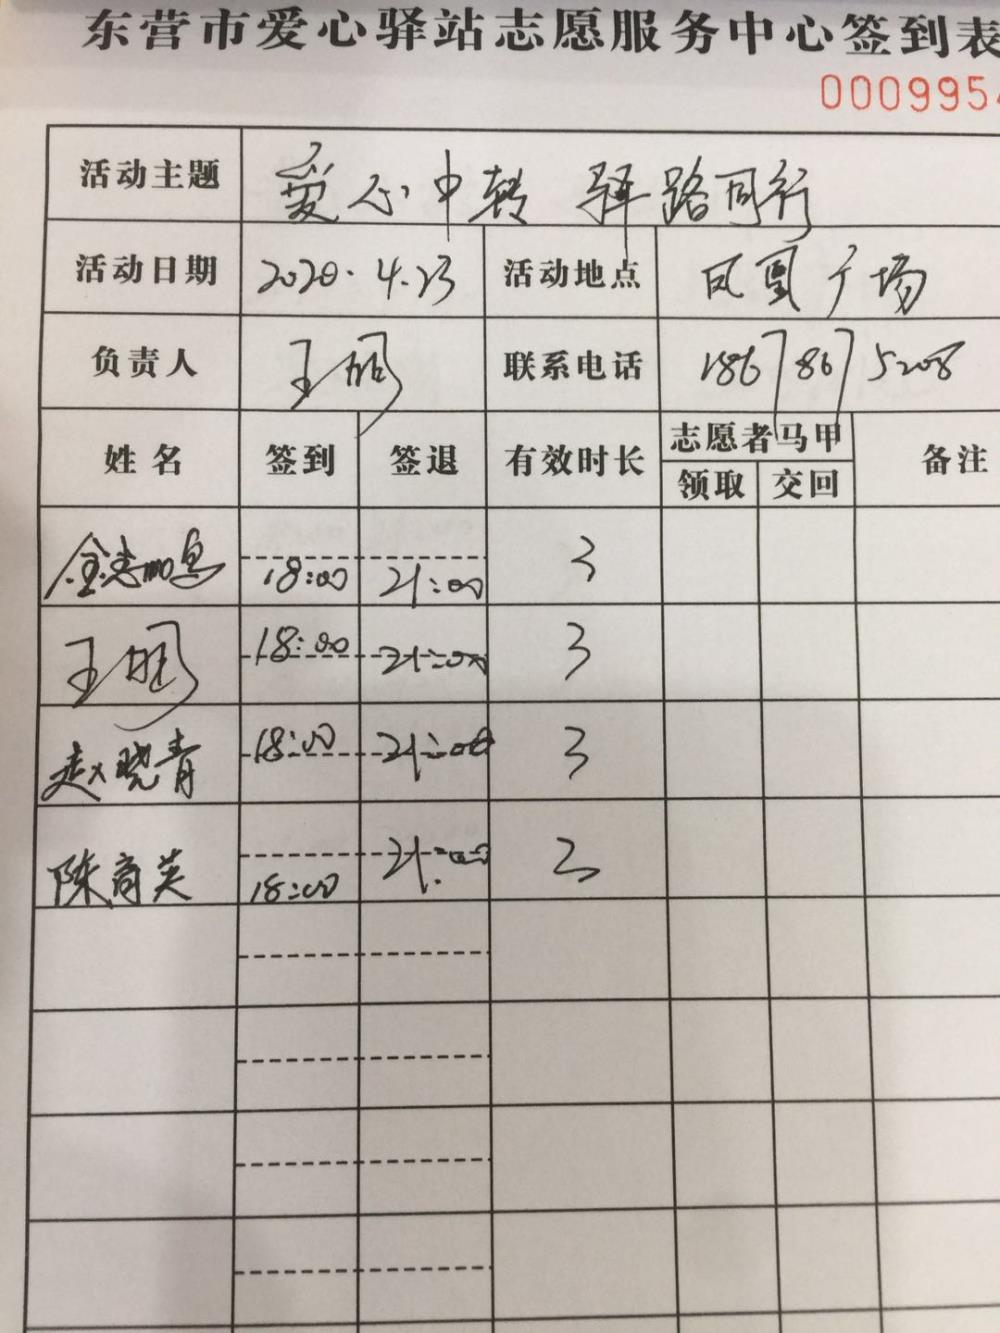 东营市爱心驿站志愿服务中心签到表
000995
活动主题 爱心中转 驿路同行
活动日期 2020.4.23 活动地点 凤凰广场
负责人 王鹏 联系电话 18678675208
姓名 签到 签退 有效时长 志愿者马甲 备注
领取 交回
18:00 21:00 3
王鹏 18:00 21:00 3
赵晓青 18:00 21:00 3
陈商英 18:00 21:00 3